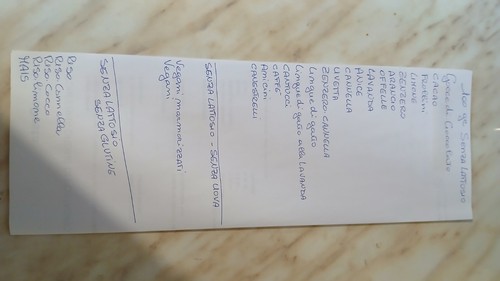 200 gr SENZA LATTOSIO
Gocce di Cioccolato
CACAO
LIMONE
ZENZERO
ARANCIO
OFFELLE
LAVANDA
ANICE
CANNELLA
UVETTA
ZENZERO-CANNELLA
Lingue di gatto
Lingue di gatto alla LAVANDA
CANTUCCI
CAFFÈ
CANESTRELLI
SENZA LATTOSIO - SENZA UOVA
Vegani marmorizzati
Vegani
SENZA LATTOSIO
SENZA GLUTINE
Riso
Riso Cannella
Riso Cocco
Riso Limone
MAIS